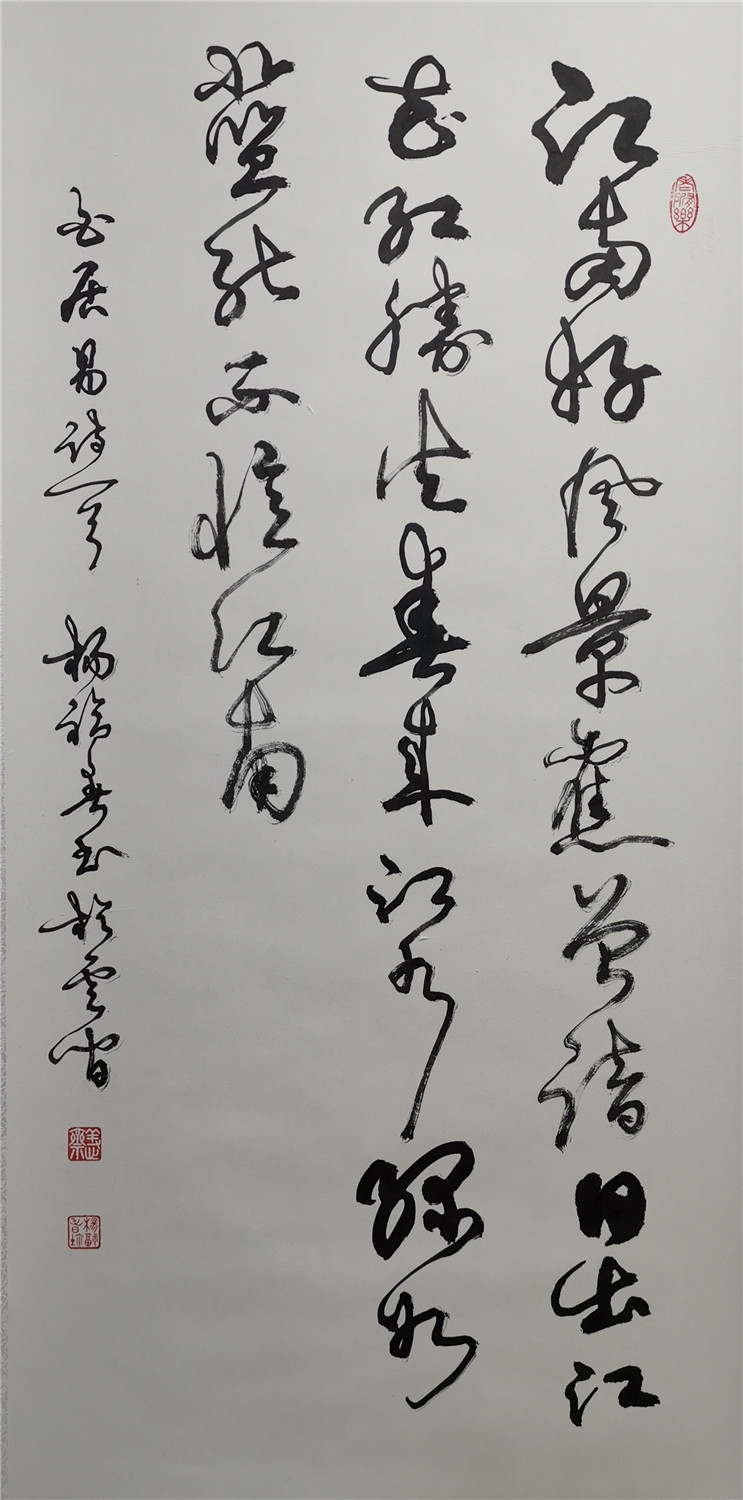 江南好風景舊曾諳日出江
花紅勝火春來江水綠如
藍能不憶江南
白居易詩一首 楊福書於雲間